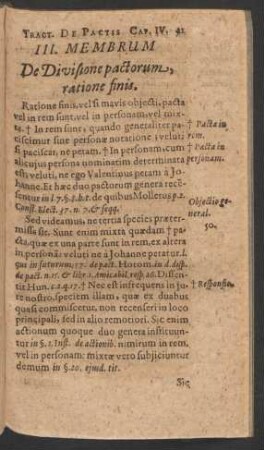 TRACT. DE PACTIS CAP. IV. 41
III. MEMBRUM
De Divisione pactorum,
ratione finis.
Ratione finis, vel si mavis objecti, pacta
vel in rem sunt, vel in personam, vel mix-
ta. † In rem sunt, quando generaliter pa-
ciscimur sine personæ notatione. veluti
si paciscar, ne petam. † In personam, cum
alicujus persona nominatim determinata
est, veluti, ne ego Valentinus petam à Jo-
hanne. Et hæc duo pactorum genera recé-
sentur in l. 7. §. 8. h. t. de quibus Mollerus p. 2.
Const. Elect. 37. n. 7. & seqq.
Sed videamus, ne tertia species præter-
missa sit. Sunt enim mixta quædam † pa-
cta, quæ ex una parte sunt in rem, ex altera
in personā: veluti ne à Johanne petatur. l.
17. de pact. Horum in d. disp.
de pact. n. Disser-
tit Hun. † Nec est infrequens in ju-
re nostro, speciem illam, quæ ex duabus
quasi commiscetur, non recenseri in loco
principali, sed in alio remotiori. Sic enim
actionum quoque duo genera instituun-
tur in §. 1. Inst. de actionib. nimirum in rem,
vel in personam: mixtæ vero subjiciuntur
demum in §. 20. ejusd. tit.
Sic
† Pacta in
rem.
† Pacta in
personam.
Objectio ge-
neral.
50.
† Responsio.